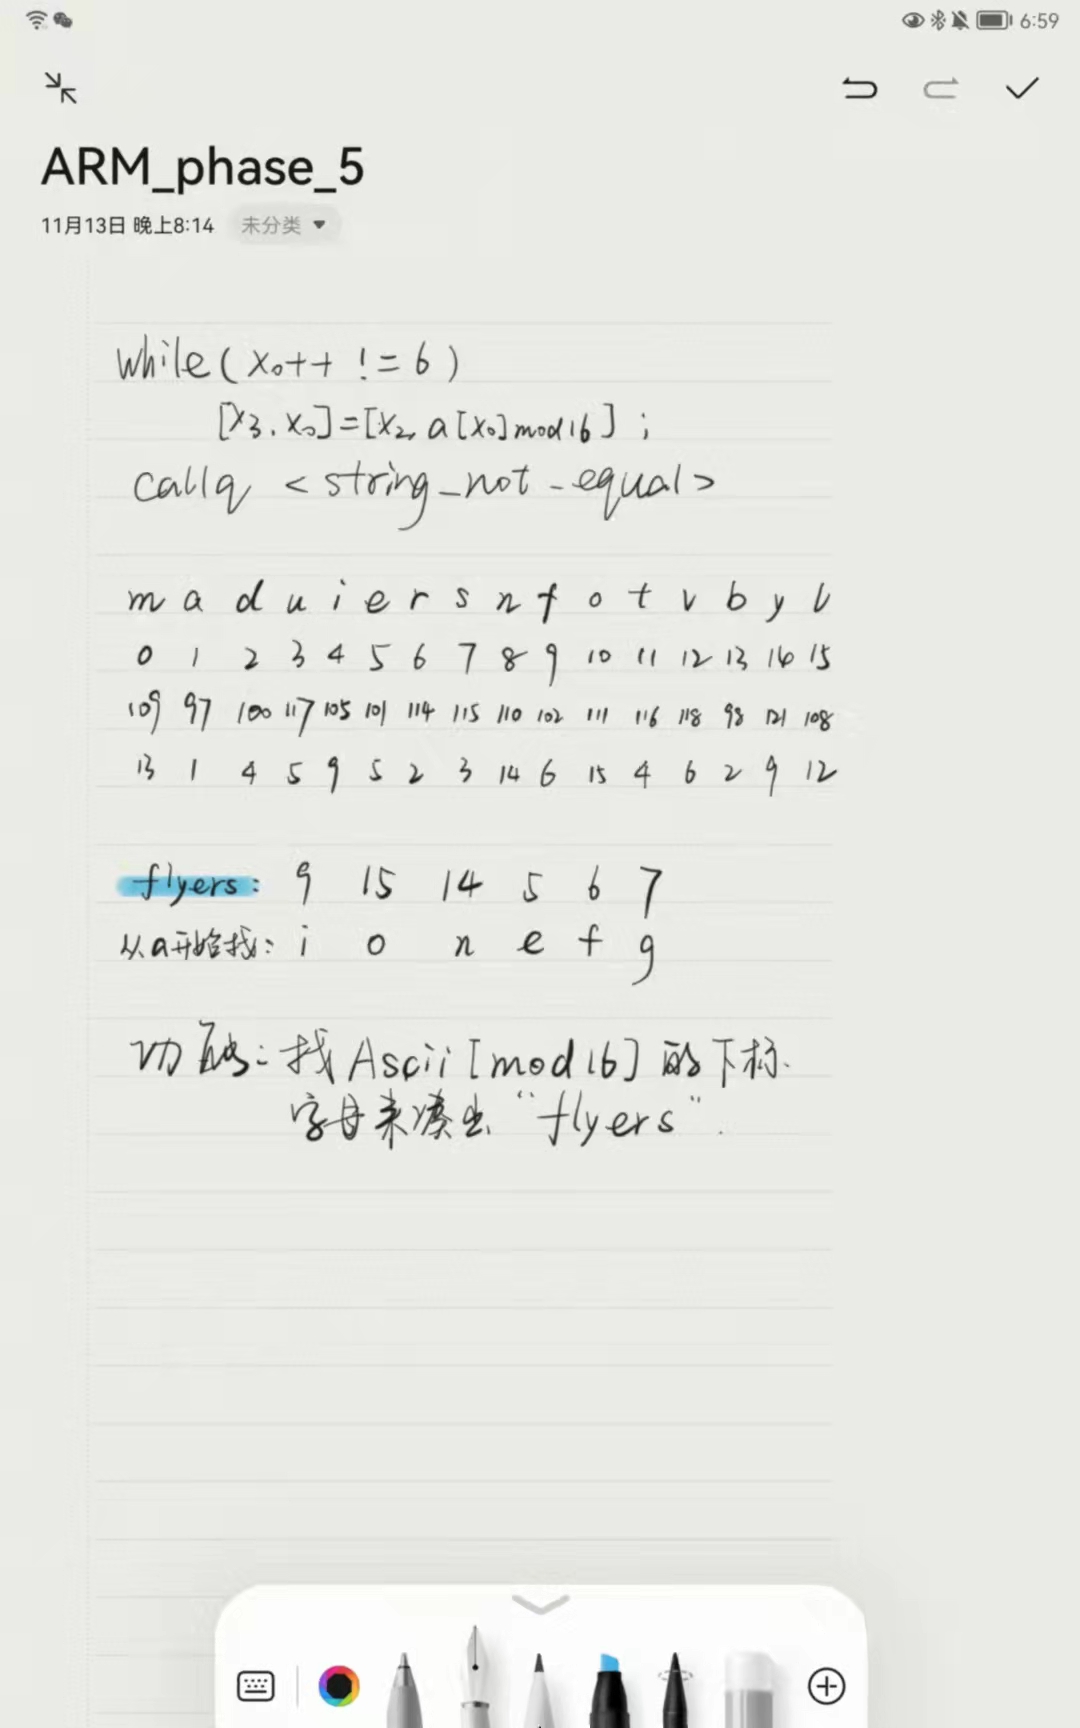 6:59
ARM_phase_5
11月13日 晚上8:14 未分类
while(x₀++ != 6)
[x₃, x₀]=[x₂, a[x₀]mod16];
callq <string_not_equal>
m a d u i e r s n f o t v b y l
0 1 2 3 4 5 6 7 8 9 10 11 12 13 14 15
109 97 100 117 105 101 114 115 110 102 111 116 118 98 121 108
13 1 4 5 9 5 2 3 14 6 15 4 6 2 9 12
flyers: 9 15 14 5 6 7
从a开始找: i o n e f g
功能: 找Ascii[mod16]的下标.
字母来凑出 "flyers".